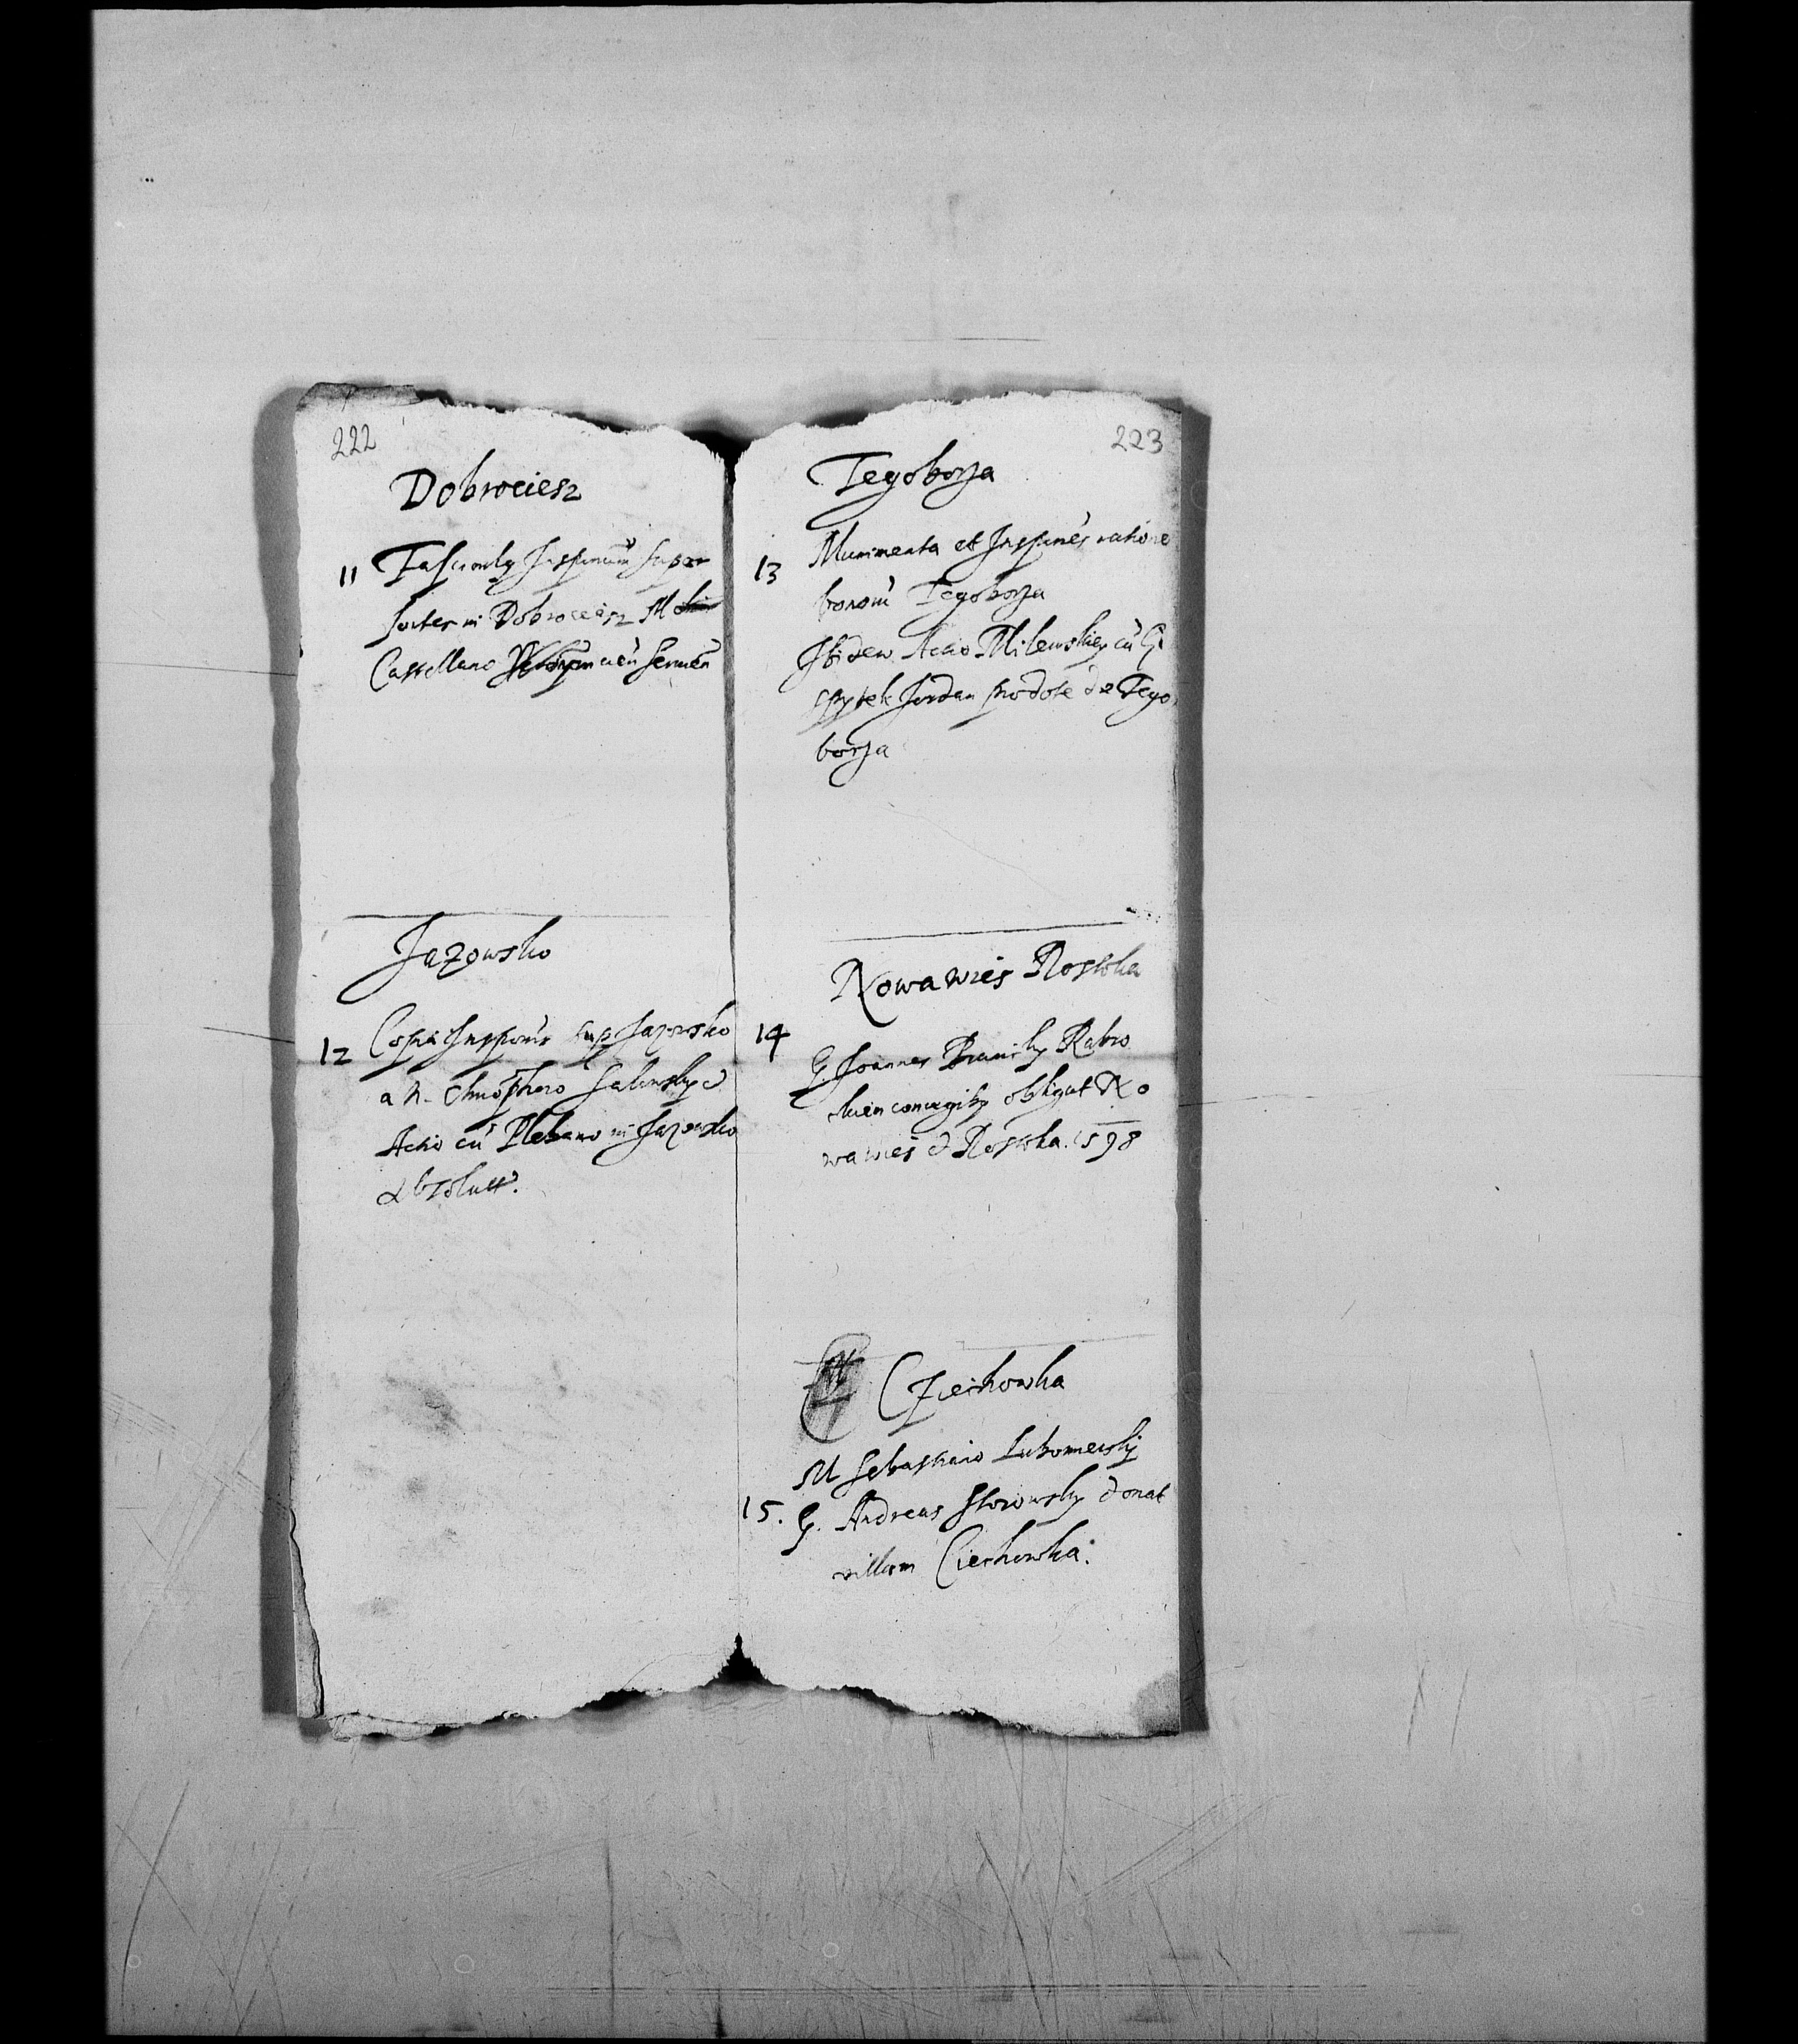 222
Dobrociesz
11 Fasciculg Inspnum super
sortes in Dobrociesz M
Castellano
Jazowsko
12 Copia Inspnis sup Jazowsko
a N.
Actio cũ Plebano in Jazowsko
absolutt.
223
Tegoborza
13 Munimenta et Inspnes ratione
bonorũ Tegoborza
Ibidem Actio Milewskiey cũ G
Spytek Jordan pro dote de Tego
borza
Nowawies Rostoka
14
G. Joannes Branisky Rabro
obligat No
wawies & Rostoka. 1598
Cziechowka
M Sebastiano Lubomersky
15. G. Andreas donat
villam Ciechowka.